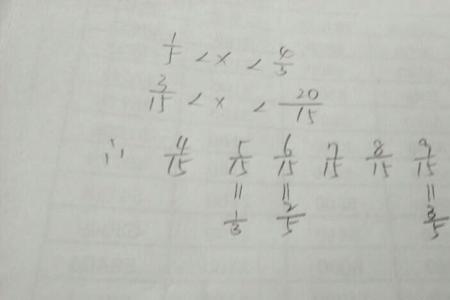 1/5 < x < 4/3
3/15 < x < 20/15
∴ 4/15 5/15 6/15 7/15 8/15 9/15
= = =
1/3 2/5 3/5